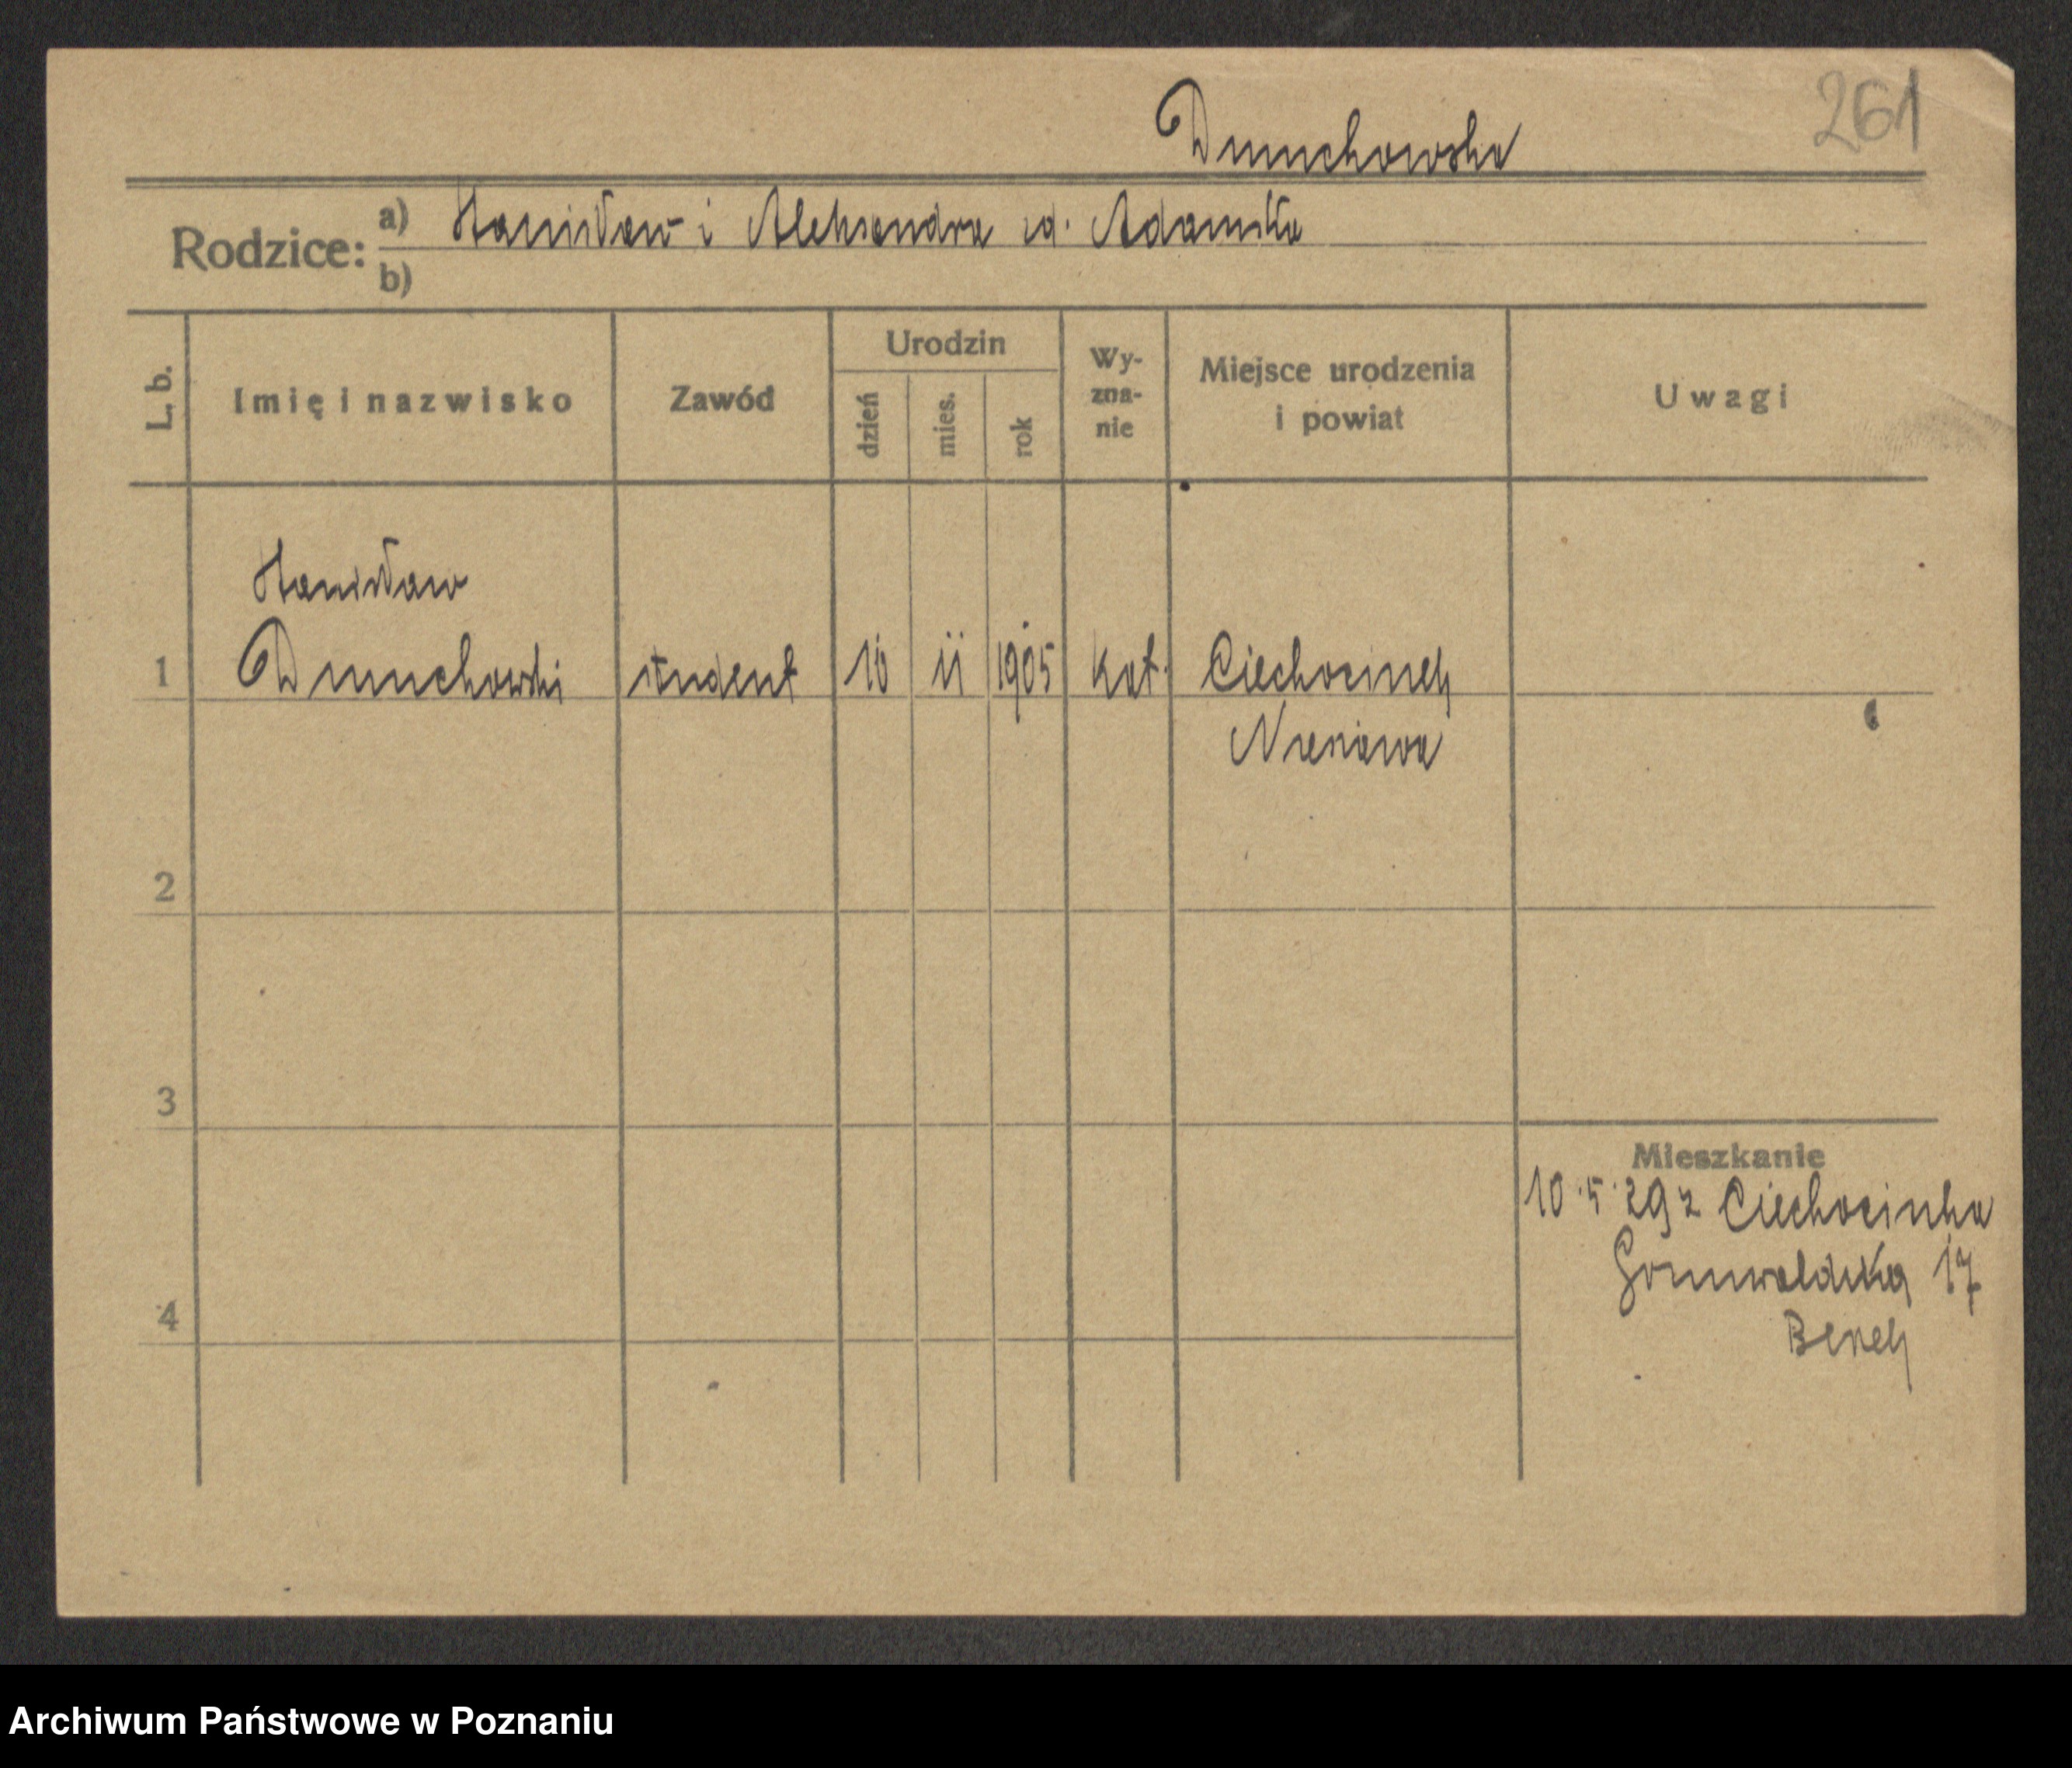 261
Dmuchowska
Rodzice:
a) Stanisław i Aleksandra zd. Adamska
b)
L. b.
Imię i nazwisko
Zawód
Urodzin
dzień
mies.
rok
Wy-
zna-
nie
Miejsce urodzenia
i powiat
Uwagi
Stanisław
1 Dmuchowski student 10 11 1905 kat. Ciechocinek
Nieszawa
2
3
4
Mieszkanie
10.5.29 z Ciechocinka
Grunwaldzka 17
Archiwum Państwowe w Poznaniu